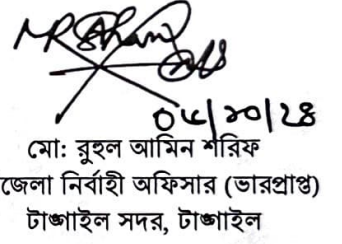 ০৮/১০/২৪
মো: রুহুল আমিন শরিফ
জেলা নির্বাহী অফিসার (ভারপ্রাপ্ত)
টাঙ্গাইল সদর, টাঙ্গাইল